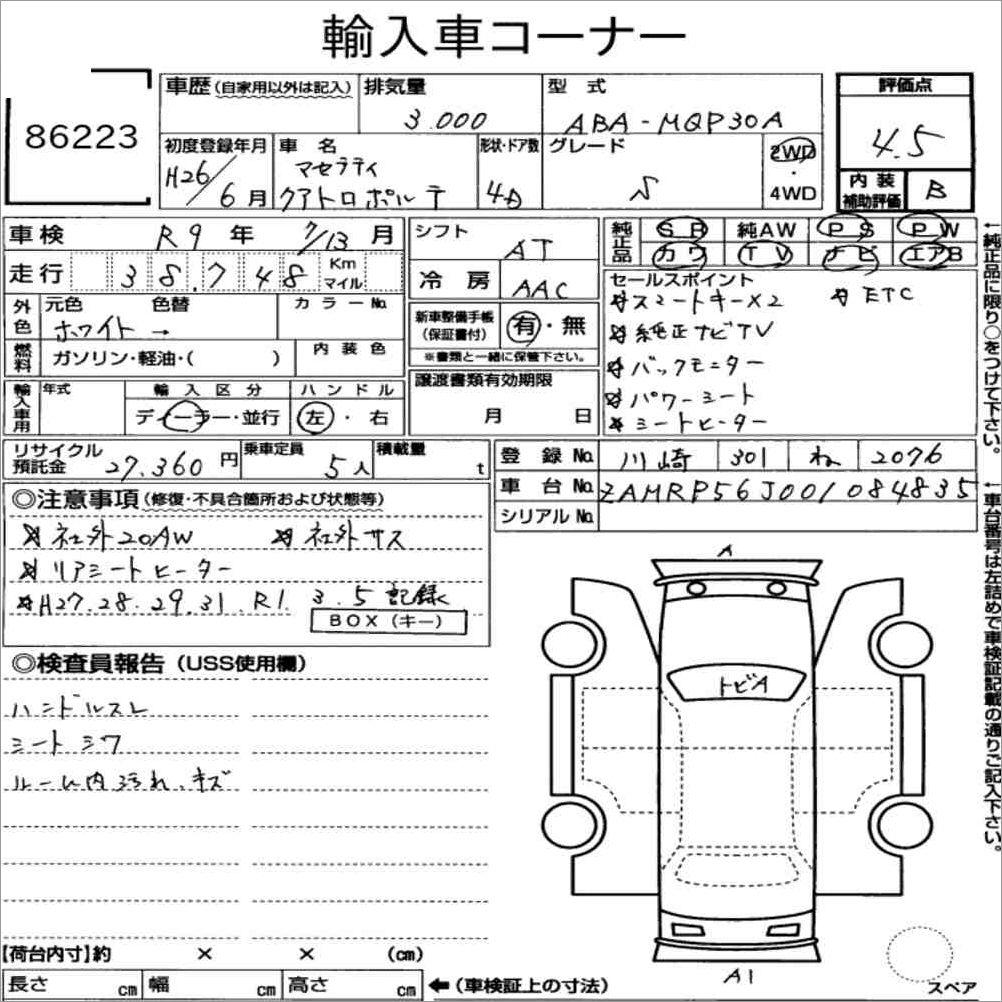 輸入車コーナー
86223
車歴(自家用以外は記入) 排気量 3.000 型式 ABA-MQP30A
評価点 4.5
初度登録年月 H26/6月 車名 マセラティ クアトロポルテ 形状・ドア数 4D グレード S 2WD・4WD
内装補助評価 B
車検 R9年 7/13月
シフト AT
純正品 SR 純AW PS PW
カワ TV ナビ エアB
走行 38,748 Km マイル
冷房 AAC
セールスポイント
☆スマートキー×2 ☆ETC
☆純正ナビTV
☆バックモニター
☆パワーシート
☆シートヒーター
外色 元色 色替 カラーNo.
ホワイト →
新車整備手帳(保証書付) 有・無
※書類と一緒に保管下さい。
燃料 ガソリン・軽油・( ) 内装色
譲渡書類有効期限 月 日
輸入車用 年式 輸入区分 ハンドル
ディーラー・並行 左・右
リサイクル預託金 27,360円 乗車定員 5人 積載量 t
登録No. 川崎 301 ね 2076
車台No. ZAMRP56J001084835
シリアルNo.
◎注意事項(修復・不具合箇所および状態等)
☆社外20AW ☆社外サス
☆リアシートヒーター
☆H27.28.29.31.R1.3.5記録
BOX(キー)
◎検査員報告(USS使用欄)
ハンドルスレ
シートシワ
ルーム内汚れ、キズ
A
トビA
A1
スペア
【荷台内寸】約 × × (cm)
長さ cm 幅 cm 高さ cm ←(車検証上の寸法)
←純正品に限り○をつけて下さい。
←車台番号は左詰めで車検証記載の通りご記入下さい。